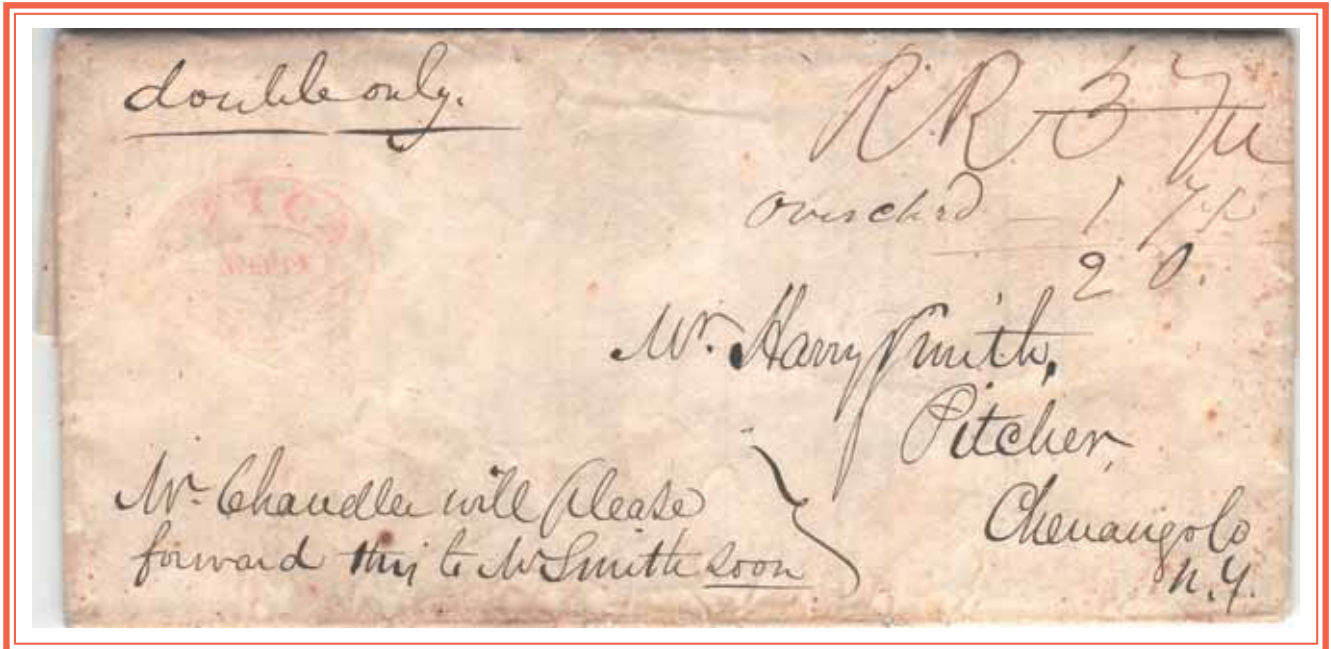 double only.
R.R. 37½
overchd 17½
20.
Mr. Harry Smith,
Pitcher,
Chenango Co
N.Y.
Mr. Chandler will please
forward this to Mr Smith soon